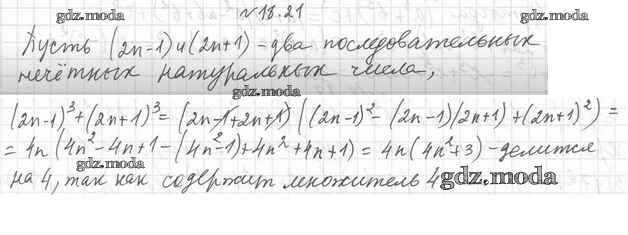 gdz.moda №18.21 gdz.moda
Пусть (2n-1) и (2n+1) - два последовательных
нечётных натуральных числа,
gdz.moda
(2n-1)³+(2n+1)³= (2n-1+2n+1) ((2n-1)²- (2n-1)(2n+1)+(2n+1)²) =
= 4n (4n²-4n+1-(4n²-1)+4n²+4n+1) = 4n(4n²+3) - делится
gdz.moda
на 4, так как содержит множитель 4
gdz.moda